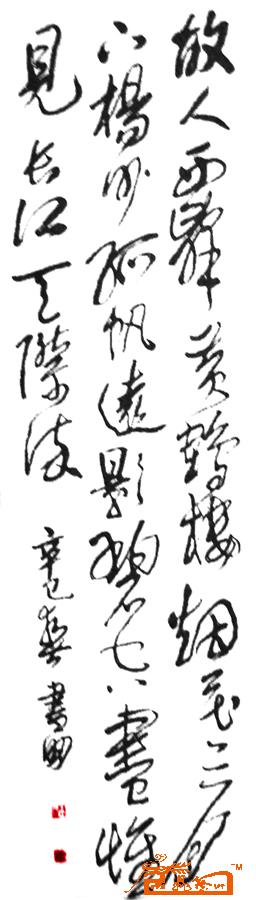 故人西辭黄鶴樓烟花三月
下楊州孤帆遠影碧空盡惟
見长江天際流
辛巳 書